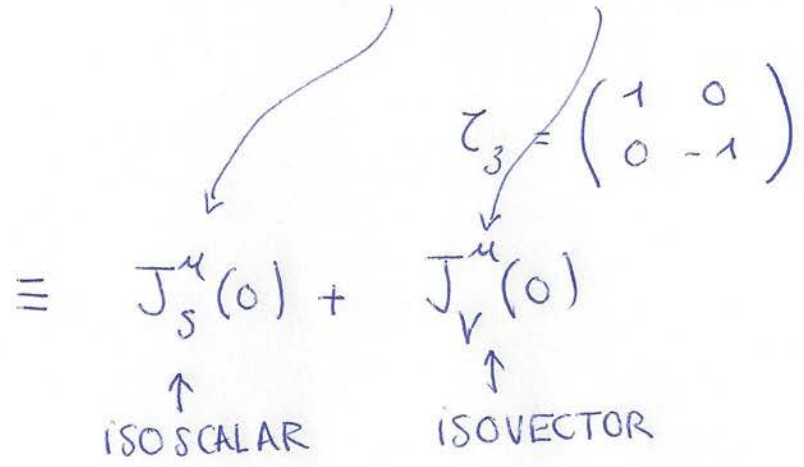 τ₃ = ( 1 0
0 -1 )
≡ J_S^μ(0) + J_V^μ(0)
↑ ↑
iSOSCALAR iSOVECTOR